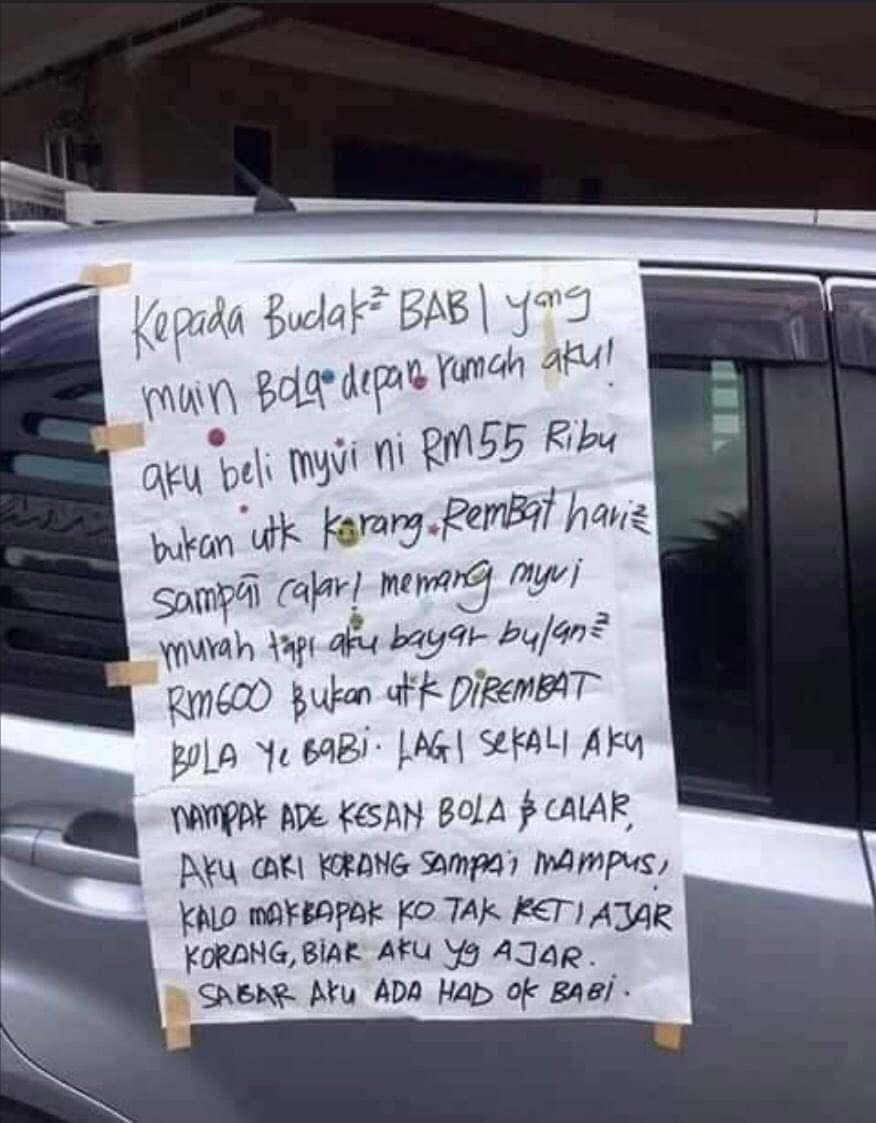 Kepada Budak² BABI yang
main Bola depan rumah aku!
aku beli myvi ni RM55 Ribu
bukan utk korang Rembat hari²
sampai calar! memang myvi
murah tapi aku bayar bulan²
RM600 Bukan utk DIREMBAT
BOLA Ye BaBi. LAGI SEKALI AKU
NAMPAK ADE KESAN BOLA & CALAR,
AKU CARI KORANG SAMPAI MAMPUS,
KALO MAKBAPAK KO TAK RETI AJAR
KORANG, BIAR AKU Yg AJAR.
SABAR AKU ADA HAD OK BABI.